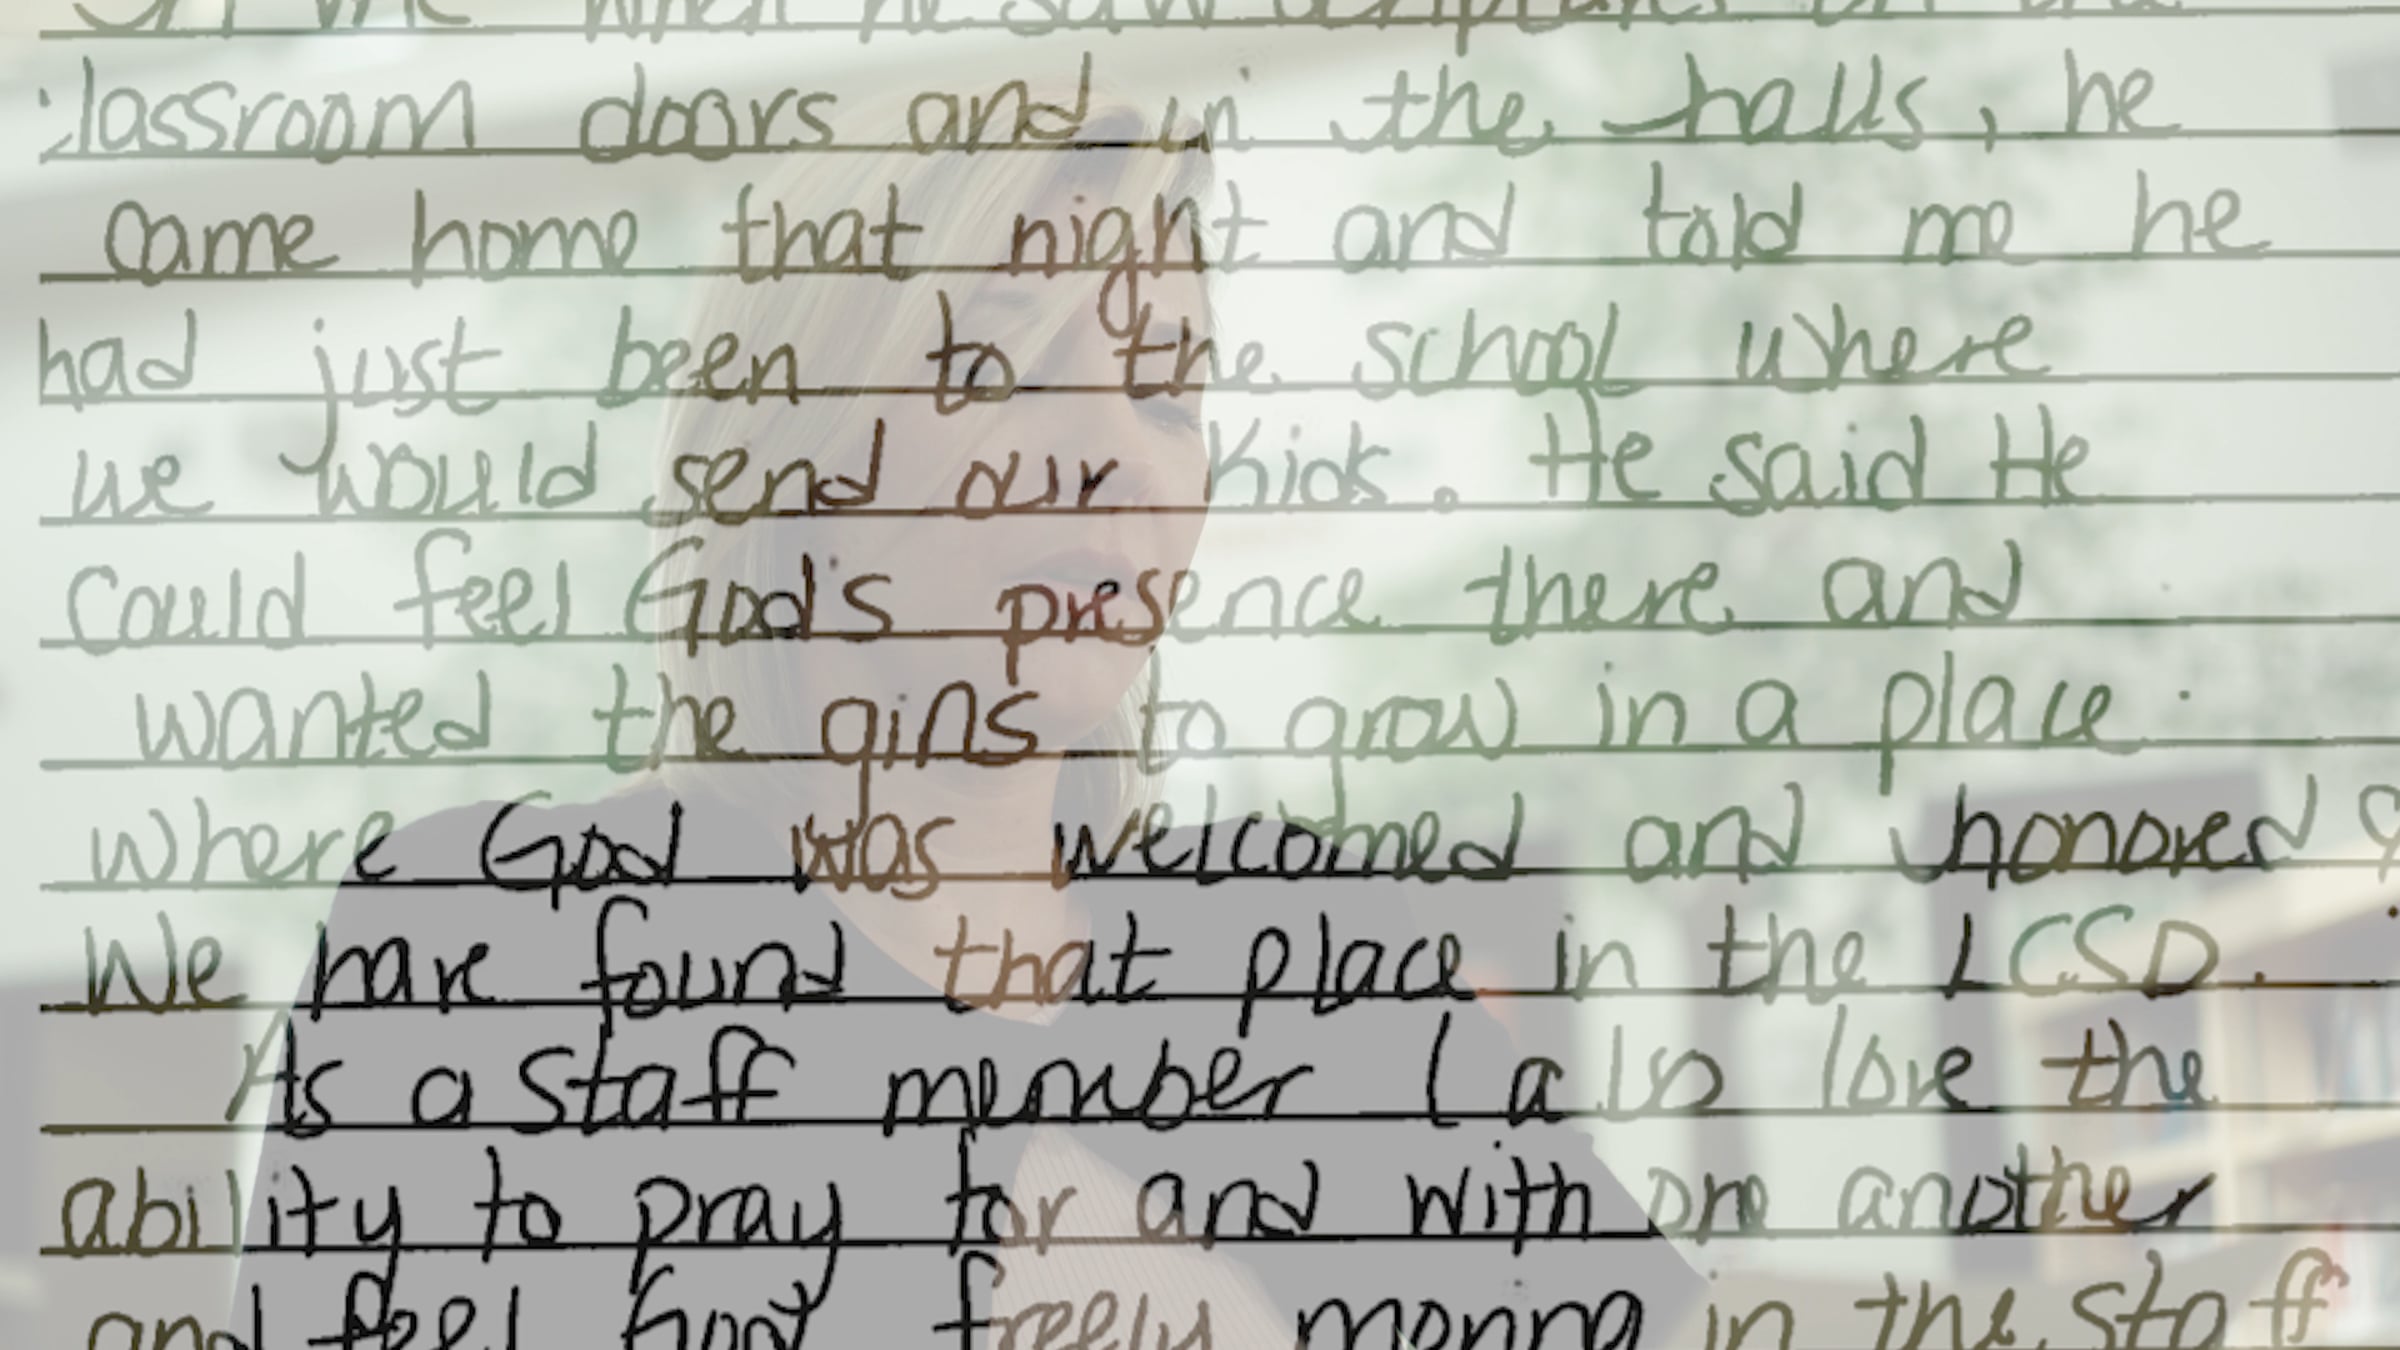 when he saw scriptures on the
classroom doors and in the halls, he
came home that night and told me he
had just been to the school where
we would send our kids. He said He
could feel God's presence there and
wanted the girls to grow in a place
where God was welcomed and honored
We have found that place in the LCSD.
As a staff member I also love the
ability to pray for and with one another
and feel God freely moving in the staff